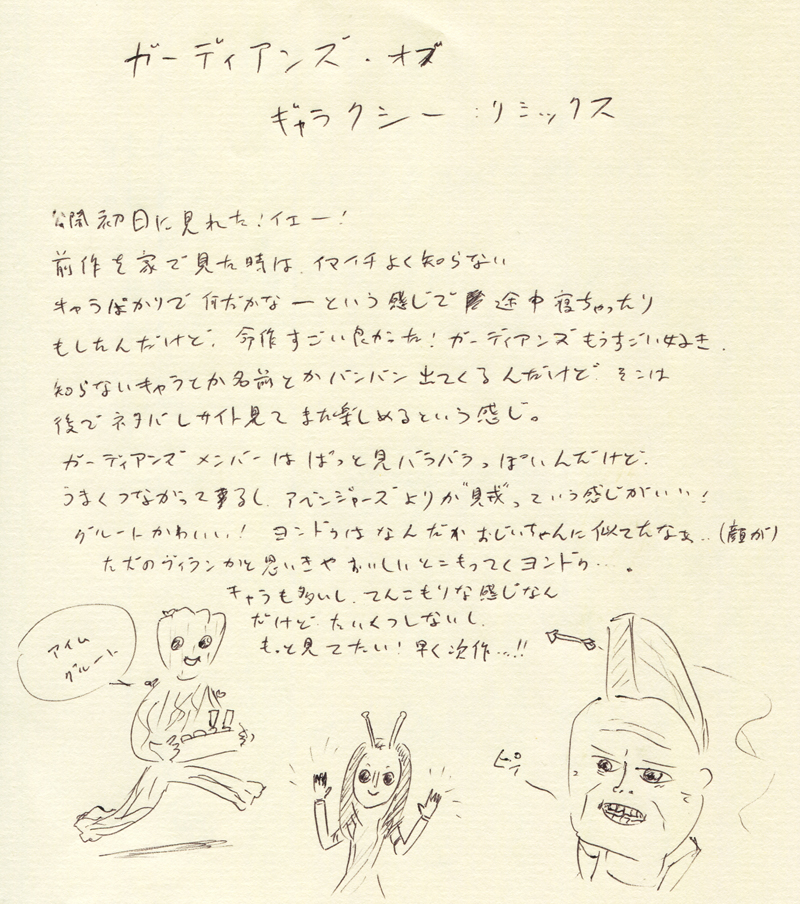 ガーディアンズ・オブ
ギャラクシー:リミックス
公開初日に見れた!イエー!
前作を家で見た時は、イマイチよく知らない
キャラばかりで何だかなーという感じで途中寝ちゃったり
もしたんだけど、今作すごい良かった!ガーディアンズもうすごい好き。
知らないキャラとか名前とかバンバン出てくるんだけど、そこは
後でネタバレサイト見てまた楽しめるという感じ。
ガーディアンズメンバーはぱっと見バラバラっぽいんだけど、
うまくつながって来るし、アベンジャーズよりが"家族"っていう感じがいい!
グルートかわいい! ヨンドゥはなんだかおじいちゃんに似てたなぁ..(顔が)
ただのヴィランかと思いきやおいしいとこもってくヨンドゥ…。
キャラも多いし、てんこもりな感じなん
だけど、たいくつしないし、
もっと見てたい!早く次作…!!
アイム
グルート
ピュー